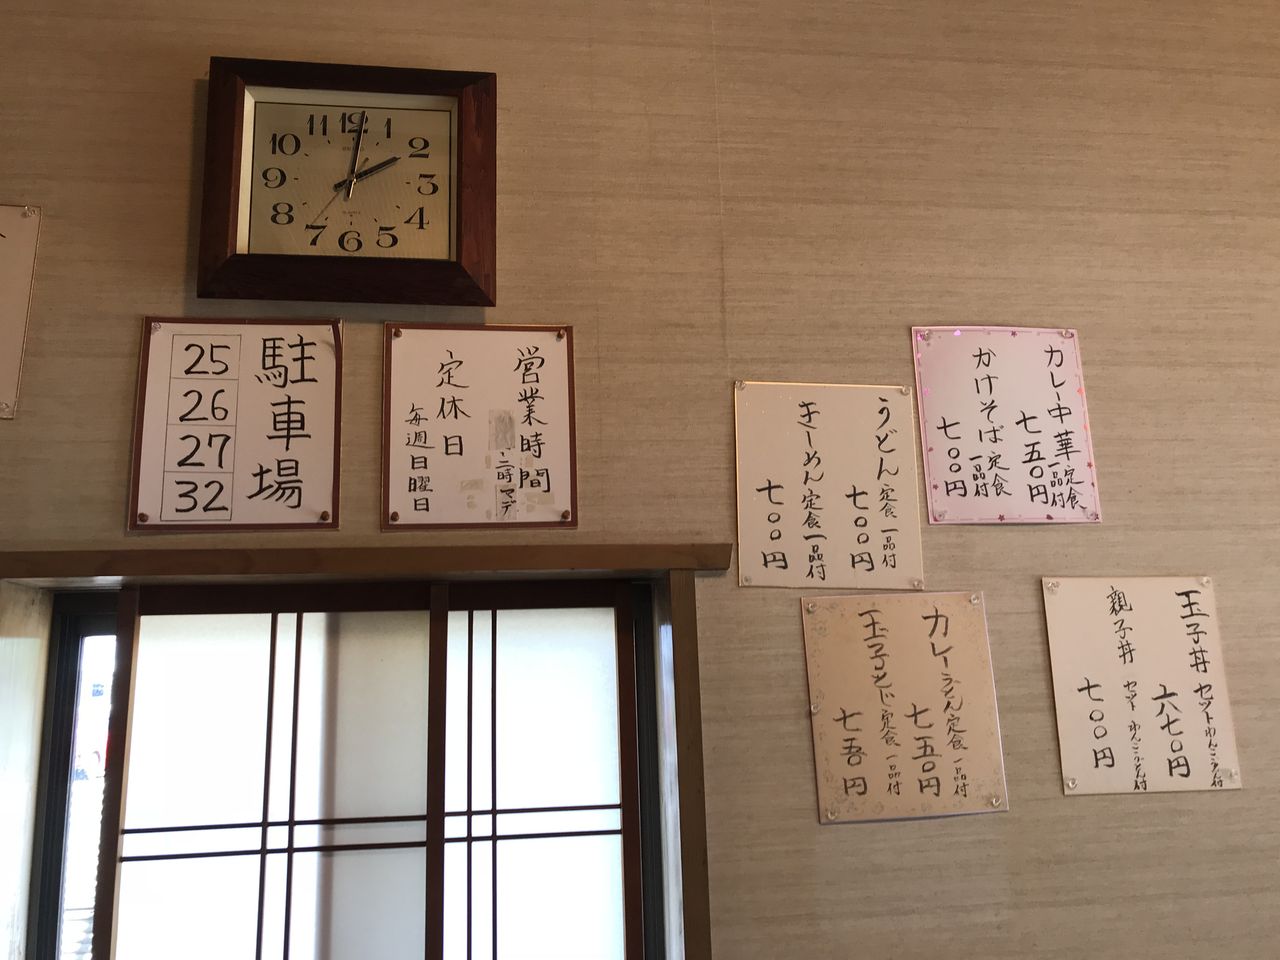 11 12 1
10 2
9 3
8 4
7 6 5
駐車場
25
26
27
32
営業時間
二時マデ
定休日
毎週日曜日
カレー中華定食一品付
七五〇円
かけそば定食一品付
七〇〇円
うどん定食一品付
七〇〇円
きしめん定食一品付
七〇〇円
カレーうどん定食一品付
七五〇円
玉子とじ定食一品付
七五〇円
玉子丼セット わんこうどん付
六七〇円
親子丼セット わんこうどん付
七〇〇円